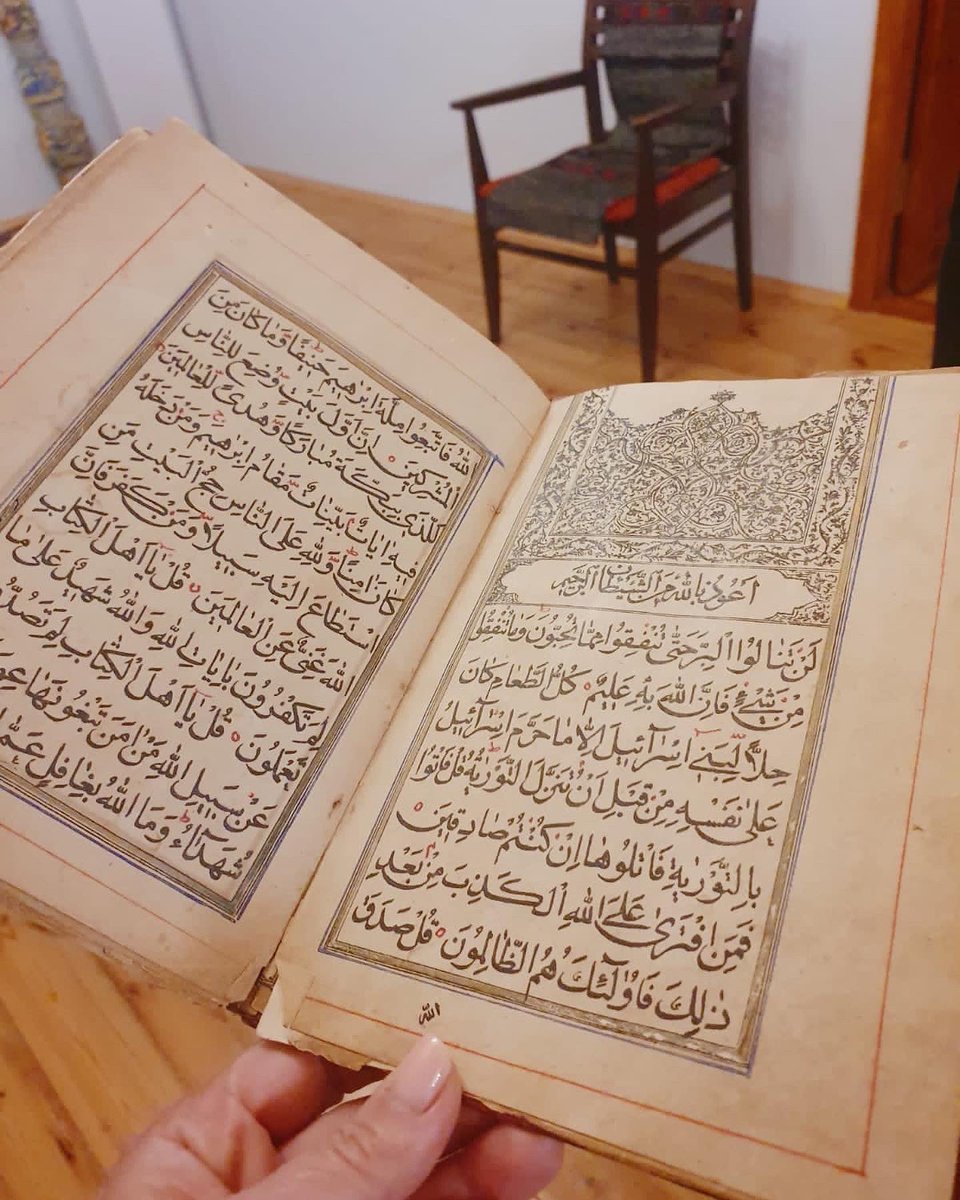 اَعُوذُ بِاللهِ مِنَ الشَّيْطَانِ الرَّجِيمِ
لَنْ تَنَالُوا الْبِرَّ حَتّٰى تُنْفِقُوا مِمَّا تُحِبُّونَ وَمَا تُنْفِقُوا
مِنْ شَيْءٍ فَاِنَّ اللهَ بِهِ عَلِيمٌ كُلُّ الطَّعَامِ كَانَ
حِلًّا لِبَنِي اِسْرَآئِيلَ اِلَّا مَا حَرَّمَ اِسْرَآئِيلُ
عَلٰى نَفْسِهِ مِنْ قَبْلِ اَنْ تُنَزَّلَ التَّوْرٰيةُ قُلْ فَاْتُوا
بِالتَّوْرٰيةِ فَاتْلُوهَا اِنْ كُنْتُمْ صَادِقِينَ
فَمَنِ افْتَرٰى عَلَى اللهِ الْكَذِبَ مِنْ بَعْدِ
ذٰلِكَ فَاُولٰئِكَ هُمُ الظَّالِمُونَ قُلْ صَدَقَ
الله
اللهُ فَاتَّبِعُوا مِلَّةَ اِبْرٰهِيمَ حَنِيفًا وَمَا كَانَ مِنَ
الْمُشْرِكِينَ اِنَّ اَوَّلَ بَيْتٍ وُضِعَ لِلنَّاسِ
لَلَّذِي بِبَكَّةَ مُبَارَكًا وَهُدًى لِلْعَالَمِينَ
فِيهِ اٰيَاتٌ بَيِّنَاتٌ مَقَامُ اِبْرٰهِيمَ وَمَنْ دَخَلَهُ
كَانَ اٰمِنًا وَلِلّٰهِ عَلَى النَّاسِ حِجُّ الْبَيْتِ مَنِ
اسْتَطَاعَ اِلَيْهِ سَبِيلًا وَمَنْ كَفَرَ فَاِنَّ
اللهَ غَنِيٌّ عَنِ الْعَالَمِينَ قُلْ يَا اَهْلَ الْكِتَابِ
لِمَ تَكْفُرُونَ بِاٰيَاتِ اللهِ وَاللهُ شَهِيدٌ عَلٰى مَا
تَعْمَلُونَ قُلْ يَا اَهْلَ الْكِتَابِ لِمَ
عَنْ سَبِيلِ اللهِ مَنْ اٰمَنَ تَبْغُونَهَا
شُهَدَآءُ وَمَا اللهُ بِغَافِلٍ